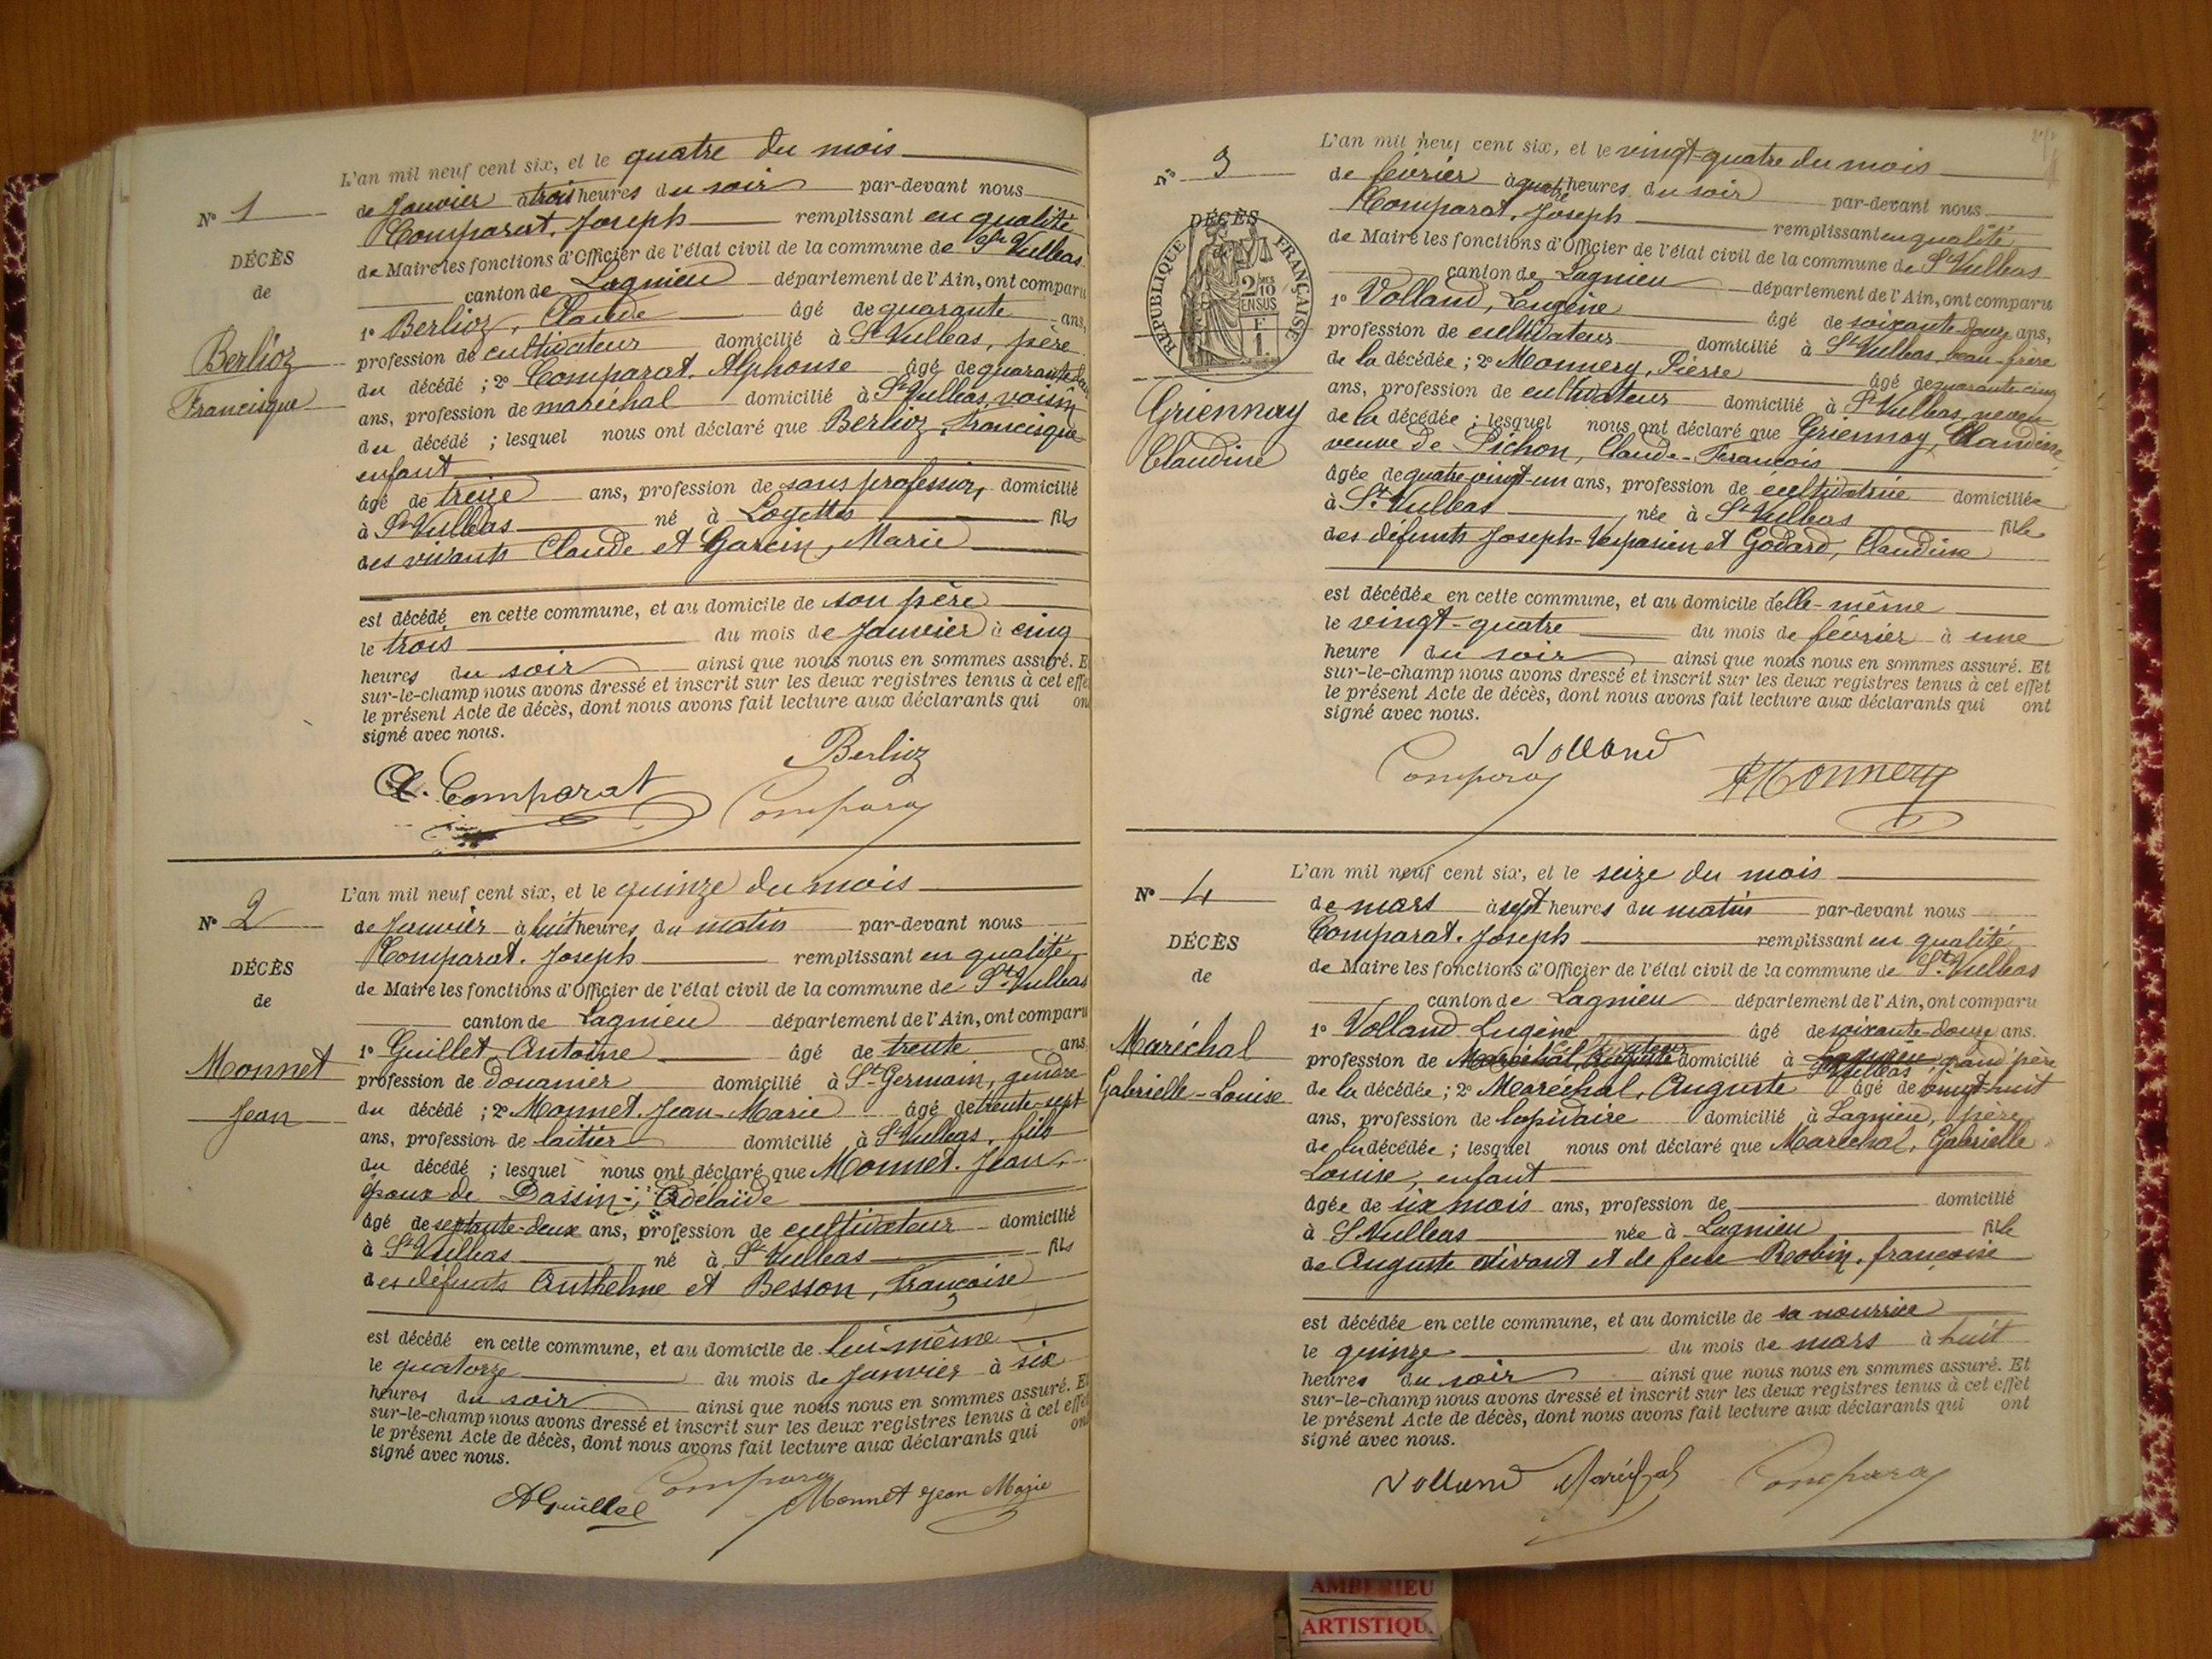 L'an mil neuf cent six, et le quatre du mois
N° 1
de Janvier à trois heures du soir par-devant nous
Comparat, Joseph remplissant en qualité
DÉCÈS
de Maire les fonctions d'Officier de l'état civil de la commune de St Vulbas
de
canton de Lagnieu département de l'Ain, ont comparu
1° Berlioz, Claude âgé de quarante ans,
Berlioz
profession de cultivateur domicilié à St Vulbas, père
Francisque
du décédé ; 2° Comparat, Alphonse âgé de quarante
ans, profession de maréchal domicilié à St Vulbas, voisin
du décédé ; lesquel nous ont déclaré que Berlioz, Francisque
enfant
âgé de treize ans, profession de sans profession, domicilié
à St Vulbas né à Loyettes fils
des vivants Claude et Garcin, Marie
est décédé en cette commune, et au domicile de son père
le trois du mois de Janvier à cinq
heures du soir ainsi que nous nous en sommes assuré. E
sur-le-champ nous avons dressé et inscrit sur les deux registres tenus à cet effe
le présent Acte de décès, dont nous avons fait lecture aux déclarants qui on
signé avec nous.
Berlioz
A. Comparat Comparat
L'an mil neuf cent six, et le quinze du mois
N° 2
de Janvier à huit heures du matin par-devant nous
Comparat, Joseph remplissant en qualité
DÉCÈS
de Maire les fonctions d'Officier de l'état civil de la commune de St Vulbas
de
canton de Lagnieu département de l'Ain, ont comparu
1° Guillet Antoine âgé de trente ans
Monnet
profession de douanier domicilié à St Germain, gendre
Jean
du décédé ; 2° Monnet, Jean-Marie âgé de trente-sept
ans, profession de laitier domicilié à St Vulbas, fils
du décédé ; lesquel nous ont déclaré que Monnet, Jean,
époux de Dassin, Adélaïde
âgé de septante-deux ans, profession de cultivateur domicilié
à St Vulbas né à St Vulbas fils
des défunts Anthelme et Besson, Françoise
est décédé en cette commune, et au domicile de lui-même
le quatorze du mois de Janvier à six
heures du soir ainsi que nous nous en sommes assuré. E
sur-le-champ nous avons dressé et inscrit sur les deux registres tenus à cet effet
le présent Acte de décès, dont nous avons fait lecture aux déclarants qui ont
signé avec nous.
Comparat
AGuillet Monnet Jean Marie
L'an mil neuf cent six, et le vingt-quatre du mois
N° 3
de février à quatre heures du soir par-devant nous
Comparat, Joseph remplissant en qualité
DÉCÈS
RÉPUBLIQUE FRANÇAISE
2 DES 10 EN SUS
F 1.
de Maire les fonctions d'Officier de l'état civil de la commune de St Vulbas
canton de Lagnieu département de l'Ain, ont comparu
1° Volland, Eugène âgé de soixante-douze ans,
profession de cultivateur domicilié à St Vulbas, beau-frère
de la décédée ; 2° Monnery, Pierre âgé de quarante cinq
Griennay
Claudine
ans, profession de cultivateur domicilié à St Vulbas, neveu
de la décédée ; lesquel nous ont déclaré que Griennay, Claudine
veuve de Pichon, Claude-François
âgée de quatre-vingt-un ans, profession de cultivatrice domiciliée
à St Vulbas née à St Vulbas fille
des défunts Joseph-Vespasien et Godard, Claudine
est décédée en cette commune, et au domicile d'elle-même
le vingt-quatre du mois de février à une
heure du soir ainsi que nous nous en sommes assuré. Et
sur-le-champ nous avons dressé et inscrit sur les deux registres tenus à cet effet
le présent Acte de décès, dont nous avons fait lecture aux déclarants qui ont
signé avec nous.
Volland
Comparat Monnery
L'an mil neuf cent six, et le seize du mois
N° 4
de mars à sept heures du matin par-devant nous
Comparat, Joseph remplissant en qualité
DÉCÈS
de Maire les fonctions d'Officier de l'état civil de la commune de St Vulbas
de
canton de Lagnieu département de l'Ain, ont comparu
1° Volland Eugène âgé de soixante-douze ans.
Maréchal
profession de domicilié à St Vulbas, grand'père
Gabrielle-Louise
de la décédée ; 2° Maréchal, Auguste âgé de vingt-huit
ans, profession de lapidaire domicilié à Lagnieu, père
de la décédée ; lesquel nous ont déclaré que Maréchal, Gabrielle
Louise, enfant
âgée de six mois ans, profession de domicilié
à St Vulbas née à Lagnieu fille
de Auguste vivant et de feue Robin, françoise
est décédée en cette commune, et au domicile de sa nourrice
le quinze du mois de mars à huit
heures du soir ainsi que nous nous en sommes assuré. Et
sur-le-champ nous avons dressé et inscrit sur les deux registres tenus à cet effet
le présent Acte de décès, dont nous avons fait lecture aux déclarants qui ont
signé avec nous.
Volland Maréchal Comparat
AMBERIEU
ARTISTIQU